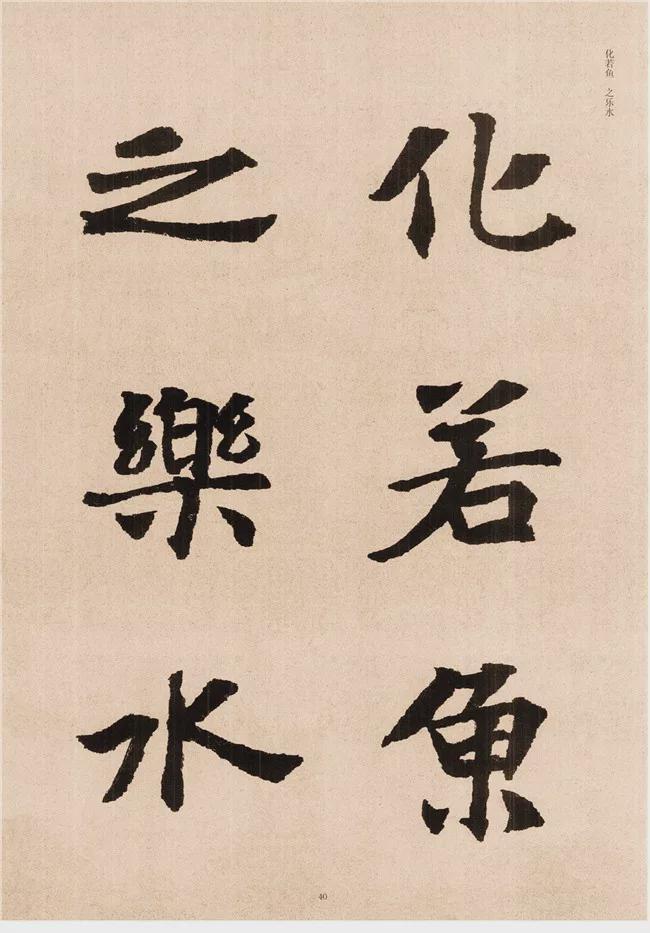 化若鱼 之乐水
化若魚
之樂水
40